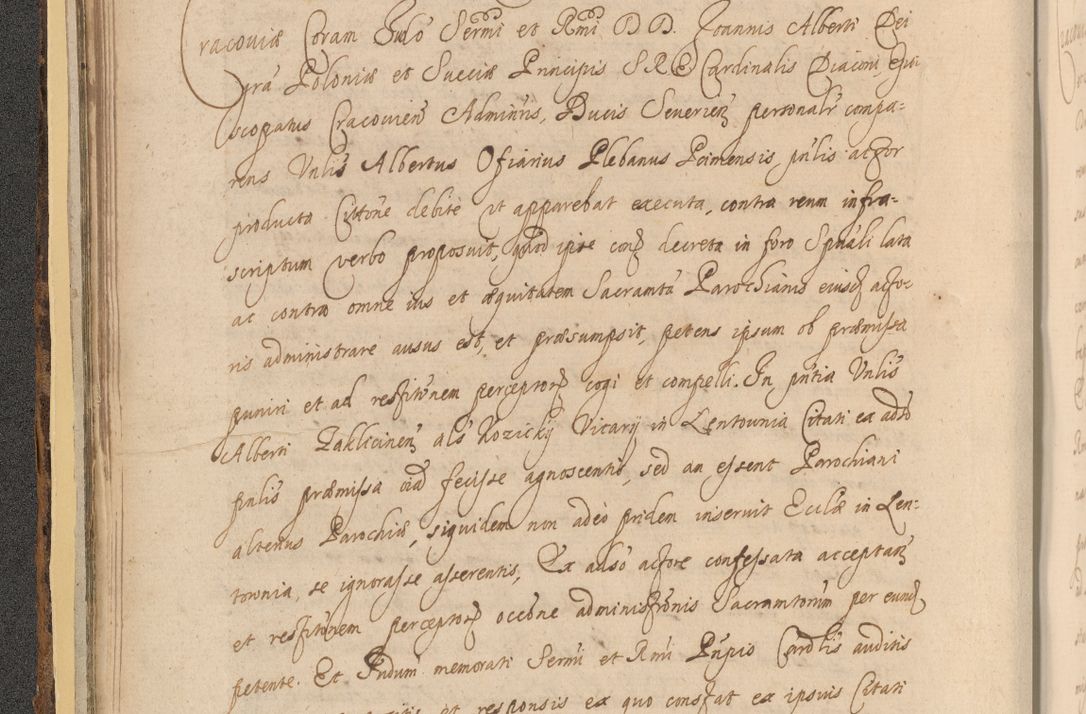 Cracoviæ Coram Judo Sermi et Rmi D D. Joannis Alberti Dei
grâ Poloniæ et Sueciæ Principis S R E Cardinalis Diaconi, Epi
scopatus Cracovien Adminris, Ducis Severien personalr compa-
rens Vnlis Albertus Ofiarius Plebanus Pcimensis, pnlis actor
producta Cittone debite ut apparebat executa, contra reum infra-
scriptum verbo proposuit, quod ipse con decreta in foro Spuali lata
ac contra omne ius et æquitatem Sacramta Parochianis eiusd acto-
ris administrare ausus est, et præsumpsit, petens ipsum ob præmissa
puniri et ad restitonem perceptor cogi et compelli. In pntia Vnlis
Alberti Zaklicinen als Kozicky Vicarij in Lentownia Citati ea adeo
pnlis præmissa oia fecisse agnoscentis, sed an essent Parochiani
alterius Parochiæ, siquidem non adeo pridem inservit Ecclæ in Len-
townia, se ignorasse asserentis, Ex adso actore confessata acceptan
et restitonem perceptor occone administronis Sacramtorum per eund
petente. Et Judum memorati Sermi et Rmi Pnpis Cardlis auditis
et responsis ex quo constat ex ipsius Citati